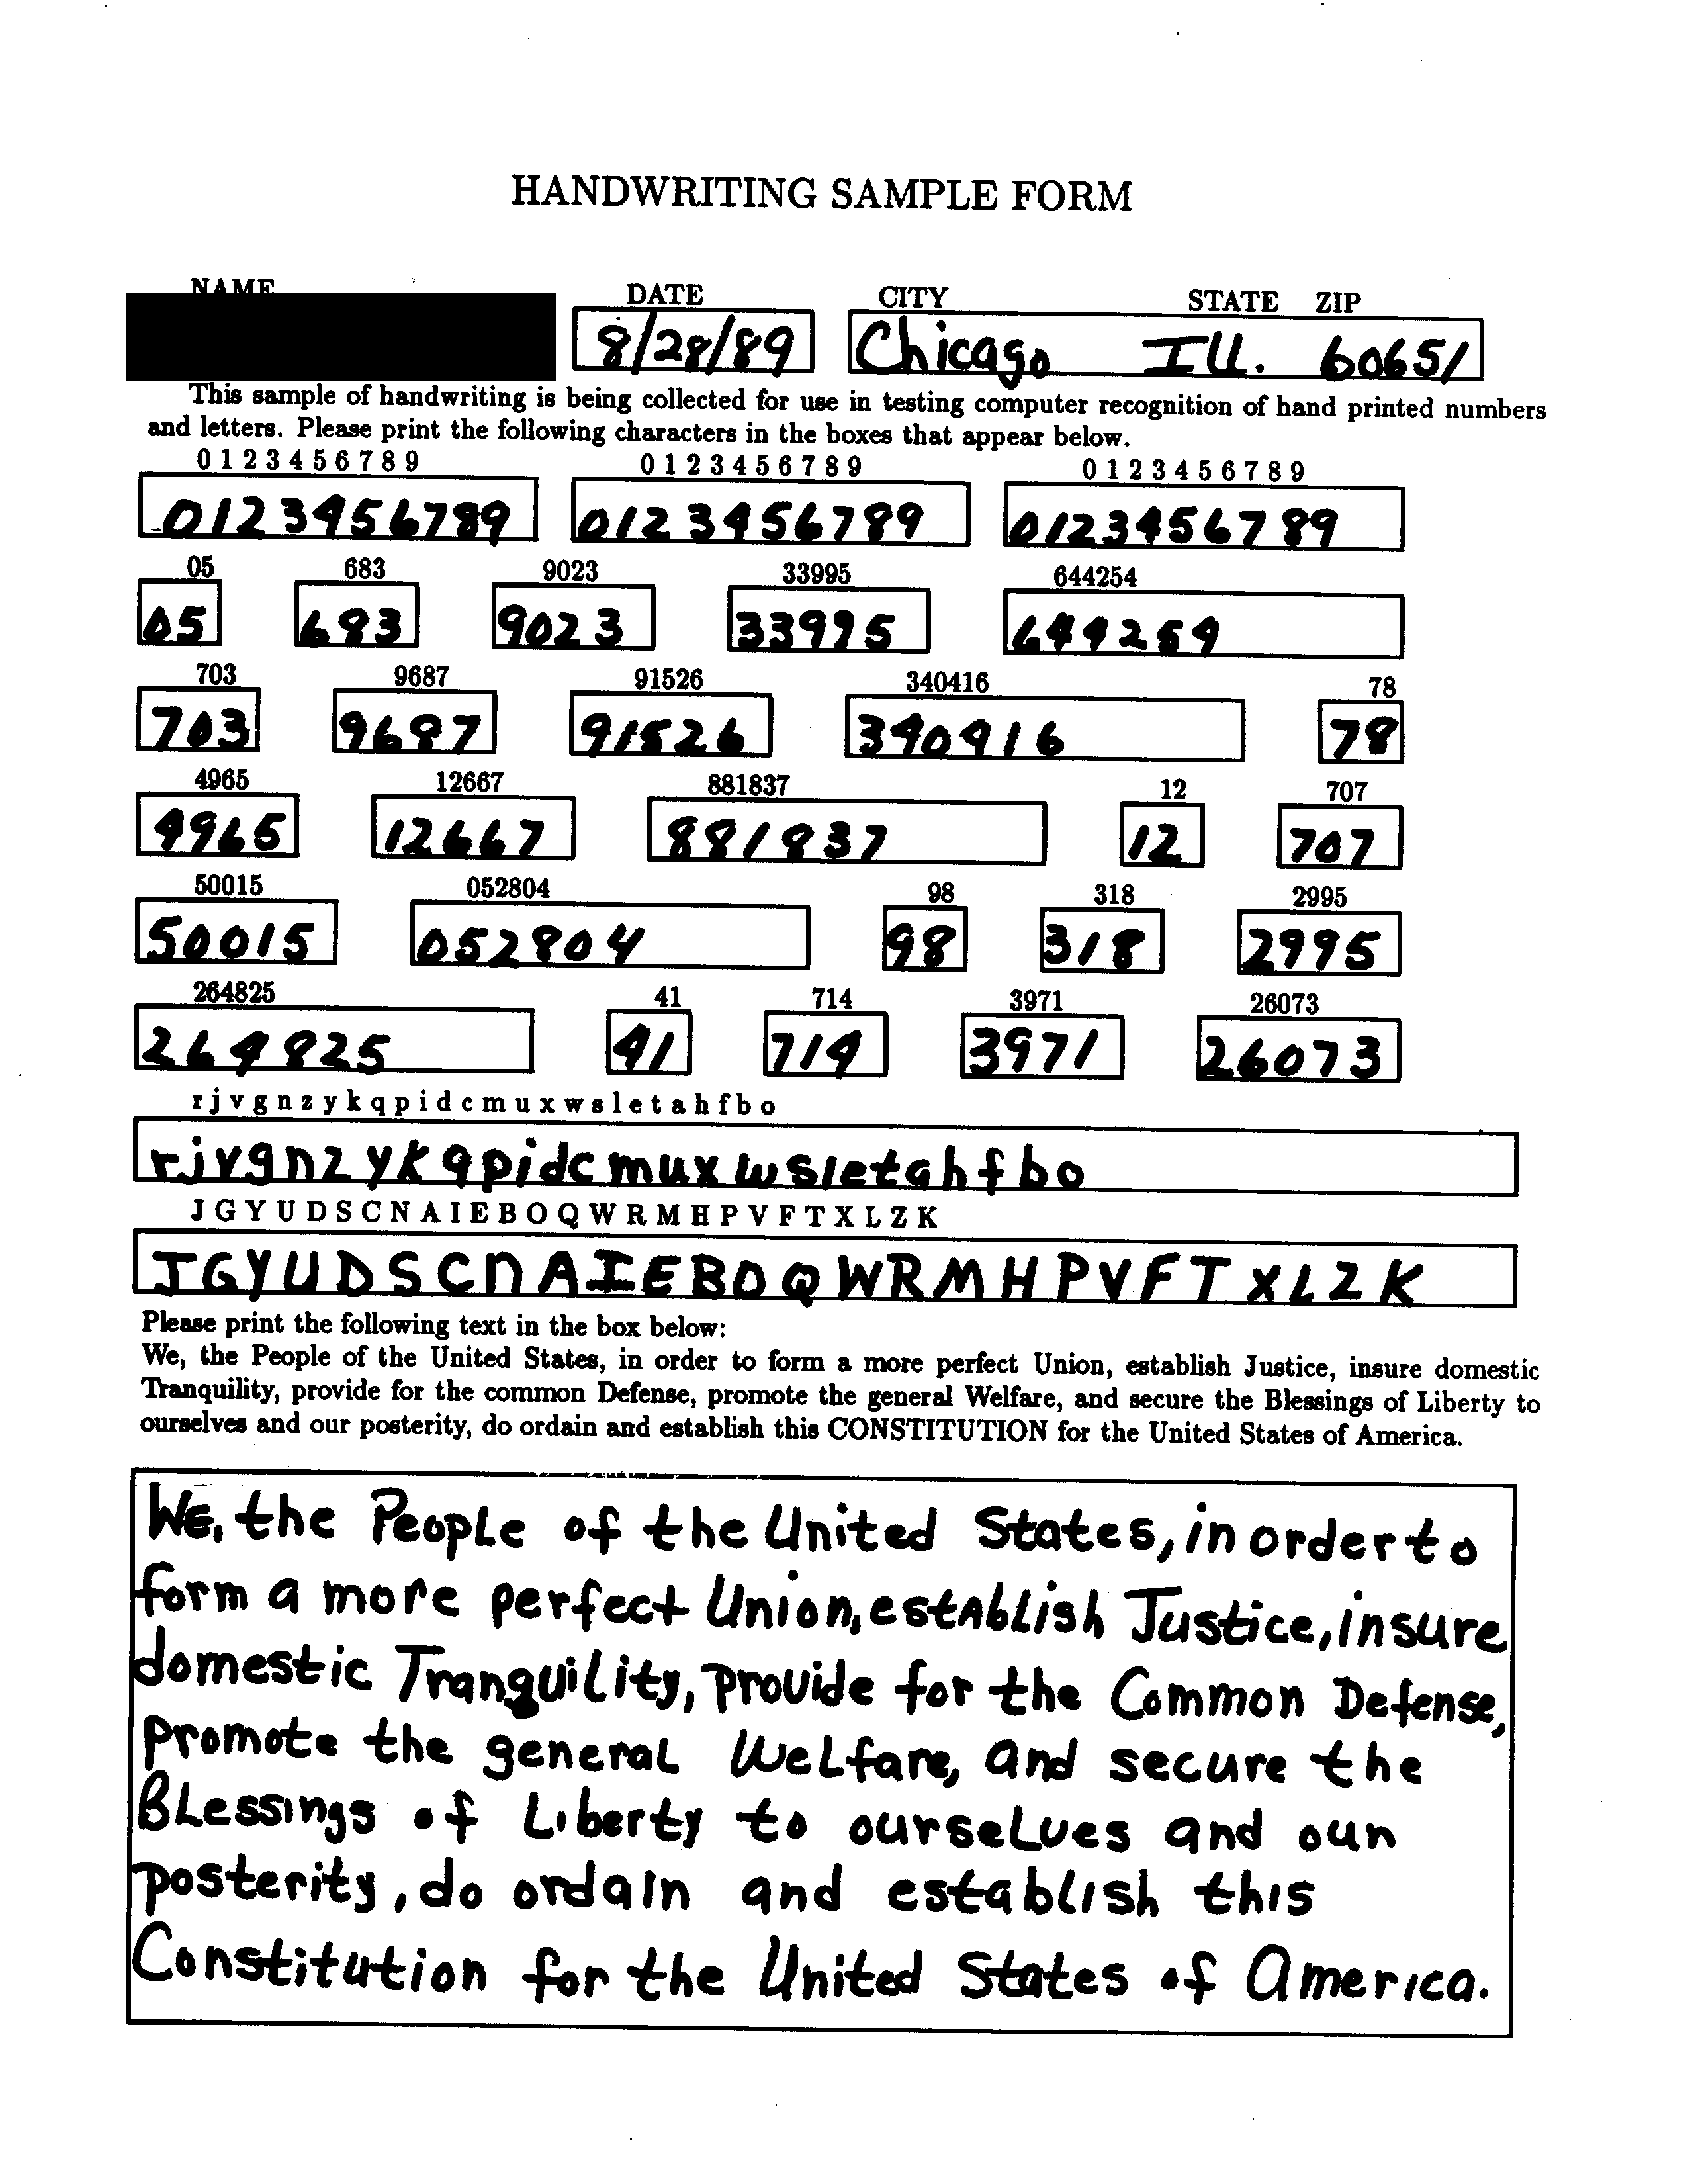 HANDWRITING SAMPLE FORM
NAME DATE CITY STATE ZIP
8/28/89 Chicago Ill. 60651
This sample of handwriting is being collected for use in testing computer recognition of hand printed numbers
and letters. Please print the following characters in the boxes that appear below.
0 1 2 3 4 5 6 7 8 9 0 1 2 3 4 5 6 7 8 9 0 1 2 3 4 5 6 7 8 9
0123456789 0123456789 0123456789
05 683 9023 33995 644254
05 683 9023 33995 644254
703 9687 91526 340416 78
703 9687 91526 340416 78
4965 12667 881837 12 707
4965 12667 881837 12 707
50015 052804 98 318 2995
50015 052804 98 318 2995
264825 41 714 3971 26073
264825 41 714 3971 26073
r j v g n z y k q p i d c m u x w s l e t a h f b o
rjvgnzykqpidcmuxwsletahfbo
J G Y U D S C N A I E B O Q W R M H P V F T X L Z K
JGYUDSCnAIEBOQWRMHPVFTXLZK
Please print the following text in the box below:
We, the People of the United States, in order to form a more perfect Union, establish Justice, insure domestic
Tranquility, provide for the common Defense, promote the general Welfare, and secure the Blessings of Liberty to
ourselves and our posterity, do ordain and establish this CONSTITUTION for the United States of America.
WE, the PeopLe of the United States, in order to
form a more perfect Union, estAbLish Justice, insure
domestic TranquiLity, Provide for the Common Defense,
Promote the generaL WeLfare, and secure the
BLessings of Liberty to ourseLves and our
posterity, do ordain and establish this
Constitution for the United States of America.